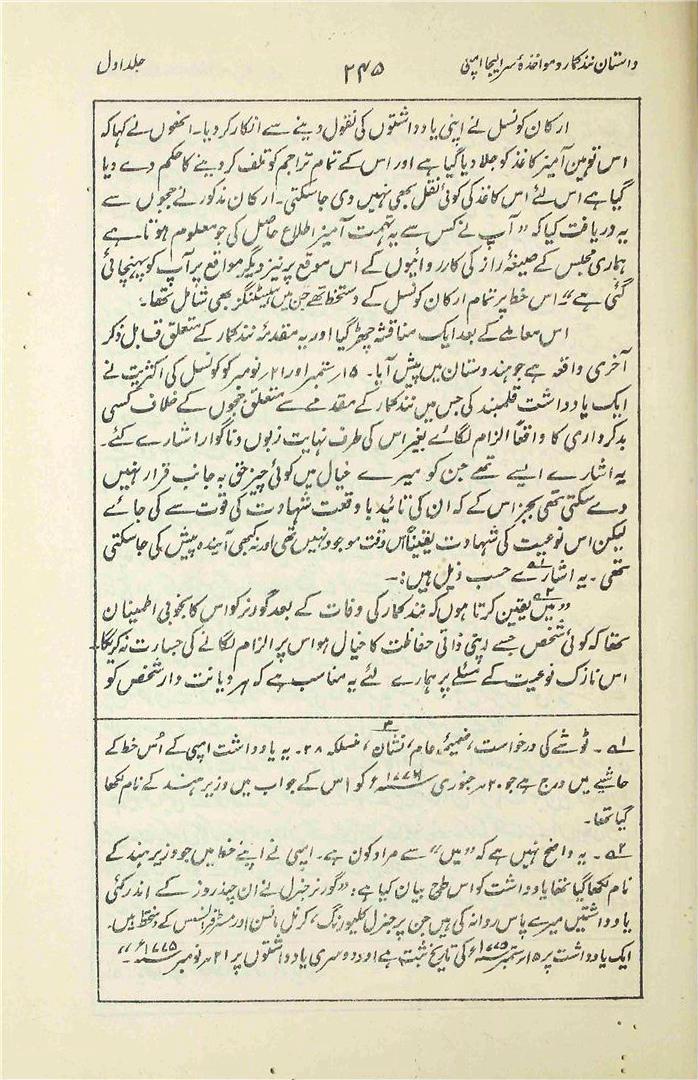 داستان نندکمار و مواخذۂ سر ایلیجا امپی ۲۴۵ جلد اول
ارکان کونسل نے اپنی یادداشتوں کی نقول دینے سے انکار کردیا۔ انھوں نے کہا کہ
اس توہین آمیز کاغذ کو جلا دیا گیا ہے اور اس کے تمام تراجم کو تلف کر دینے کا حکم دے دیا
گیا ہے اس لئے اس کاغذ کی کوئی نقل بھی نہیں دی جاسکتی۔ ارکان مذکور نے ججوں سے
یہ دریافت کیا کہ ”آپ نے کس سے یہ تہمت آمیز اطلاع حاصل کی جو معلوم ہوتا ہے
ہماری مجلس کے صیغۂ راز کی کارروائیوں کے اس موقع پر نیز دیگر مواقع پر آپ کو پہنچائی
گئی ہے“۔ اس خط پر تمام ارکان کونسل کے دستخط تھے جن میں ہیسٹنگز بھی شامل تھا۔
اس معاملے کے بعد ایک مناقشہ چھڑ گیا اور یہ مقدمۂ نندکمار کے متعلق قابل ذکر
آخری واقعہ ہے جو ہندوستان میں پیش آیا۔ ۱۵ ستمبر اور ۲۱ نومبر کو کونسل کی اکثریت نے
ایک یادداشت قلمبند کی جس میں نندکمار کے مقدمے سے متعلق ججوں کے خلاف کسی
بدکرداری کا واقعاً الزام لگائے بغیر اس کی طرف نہایت زبوں و ناگوار اشارے کئے۔
یہ اشارے ایسے تھے جن کو میرے خیال میں کوئی چیز حق بہ جانب قرار نہیں
دے سکتی تھی بجز اس کے کہ ان کی تائید باوقعت شہادت کی قوت سے کی جائے
لیکن اس نوعیت کی شہادت یقیناً اس وقت موجود نہیں تھی اور نہ کبھی آیندہ پیش کی جاسکتی
تھی۔ یہ اشارے۱ حسب ذیل ہیں:۔
”میں۲ یقین کرتا ہوں کہ نندکمار کی وفات کے بعد گورنر کو اس کا بخوبی اطمینان
تھا کہ کوئی شخص جسے اپنی ذاتی حفاظت کا خیال ہو اس پر الزام لگانے کی جسارت نہ کریگا
اس نازک نوعیت کے مسئلے پر ہمارے لئے یہ مناسب ہے کہ ہر دیانت دار شخص کو
۱؎۔ ٹوشے کی درخواست، ضمیمۂ عام، نشان ۳، منسلکہ ۲۸۔ یہ یادداشت امپی کے اُس خط کے
حاشیے میں درج ہے جو ۲۰ جنوری ۱۷۷۶ء کو اس کے جواب میں وزیر ہند کے نام لکھا
گیا تھا۔
۲؎۔ یہ واضح نہیں ہے کہ ”میں“ سے مراد کون ہے۔ امپی نے اپنے خط میں جو وزیر ہند کے
نام لکھا گیا تھا یادداشت کو اس طرح بیان کیا ہے: ”گورنر جنرل نے ان چند روز کے اندر کئی
یادداشتیں میرے پاس روانہ کی ہیں جن پر جنرل کلیورنگ، کرنل مانسن اور مسٹر فرانسس کے دستخط ہیں۔
ایک یادداشت پر ۱۵ ستمبر ۱۷۷۵ء کی تاریخ ثبت ہے اور دوسری یادداشتوں پر ۲۱ نومبر ۱۷۷۵ء“۔